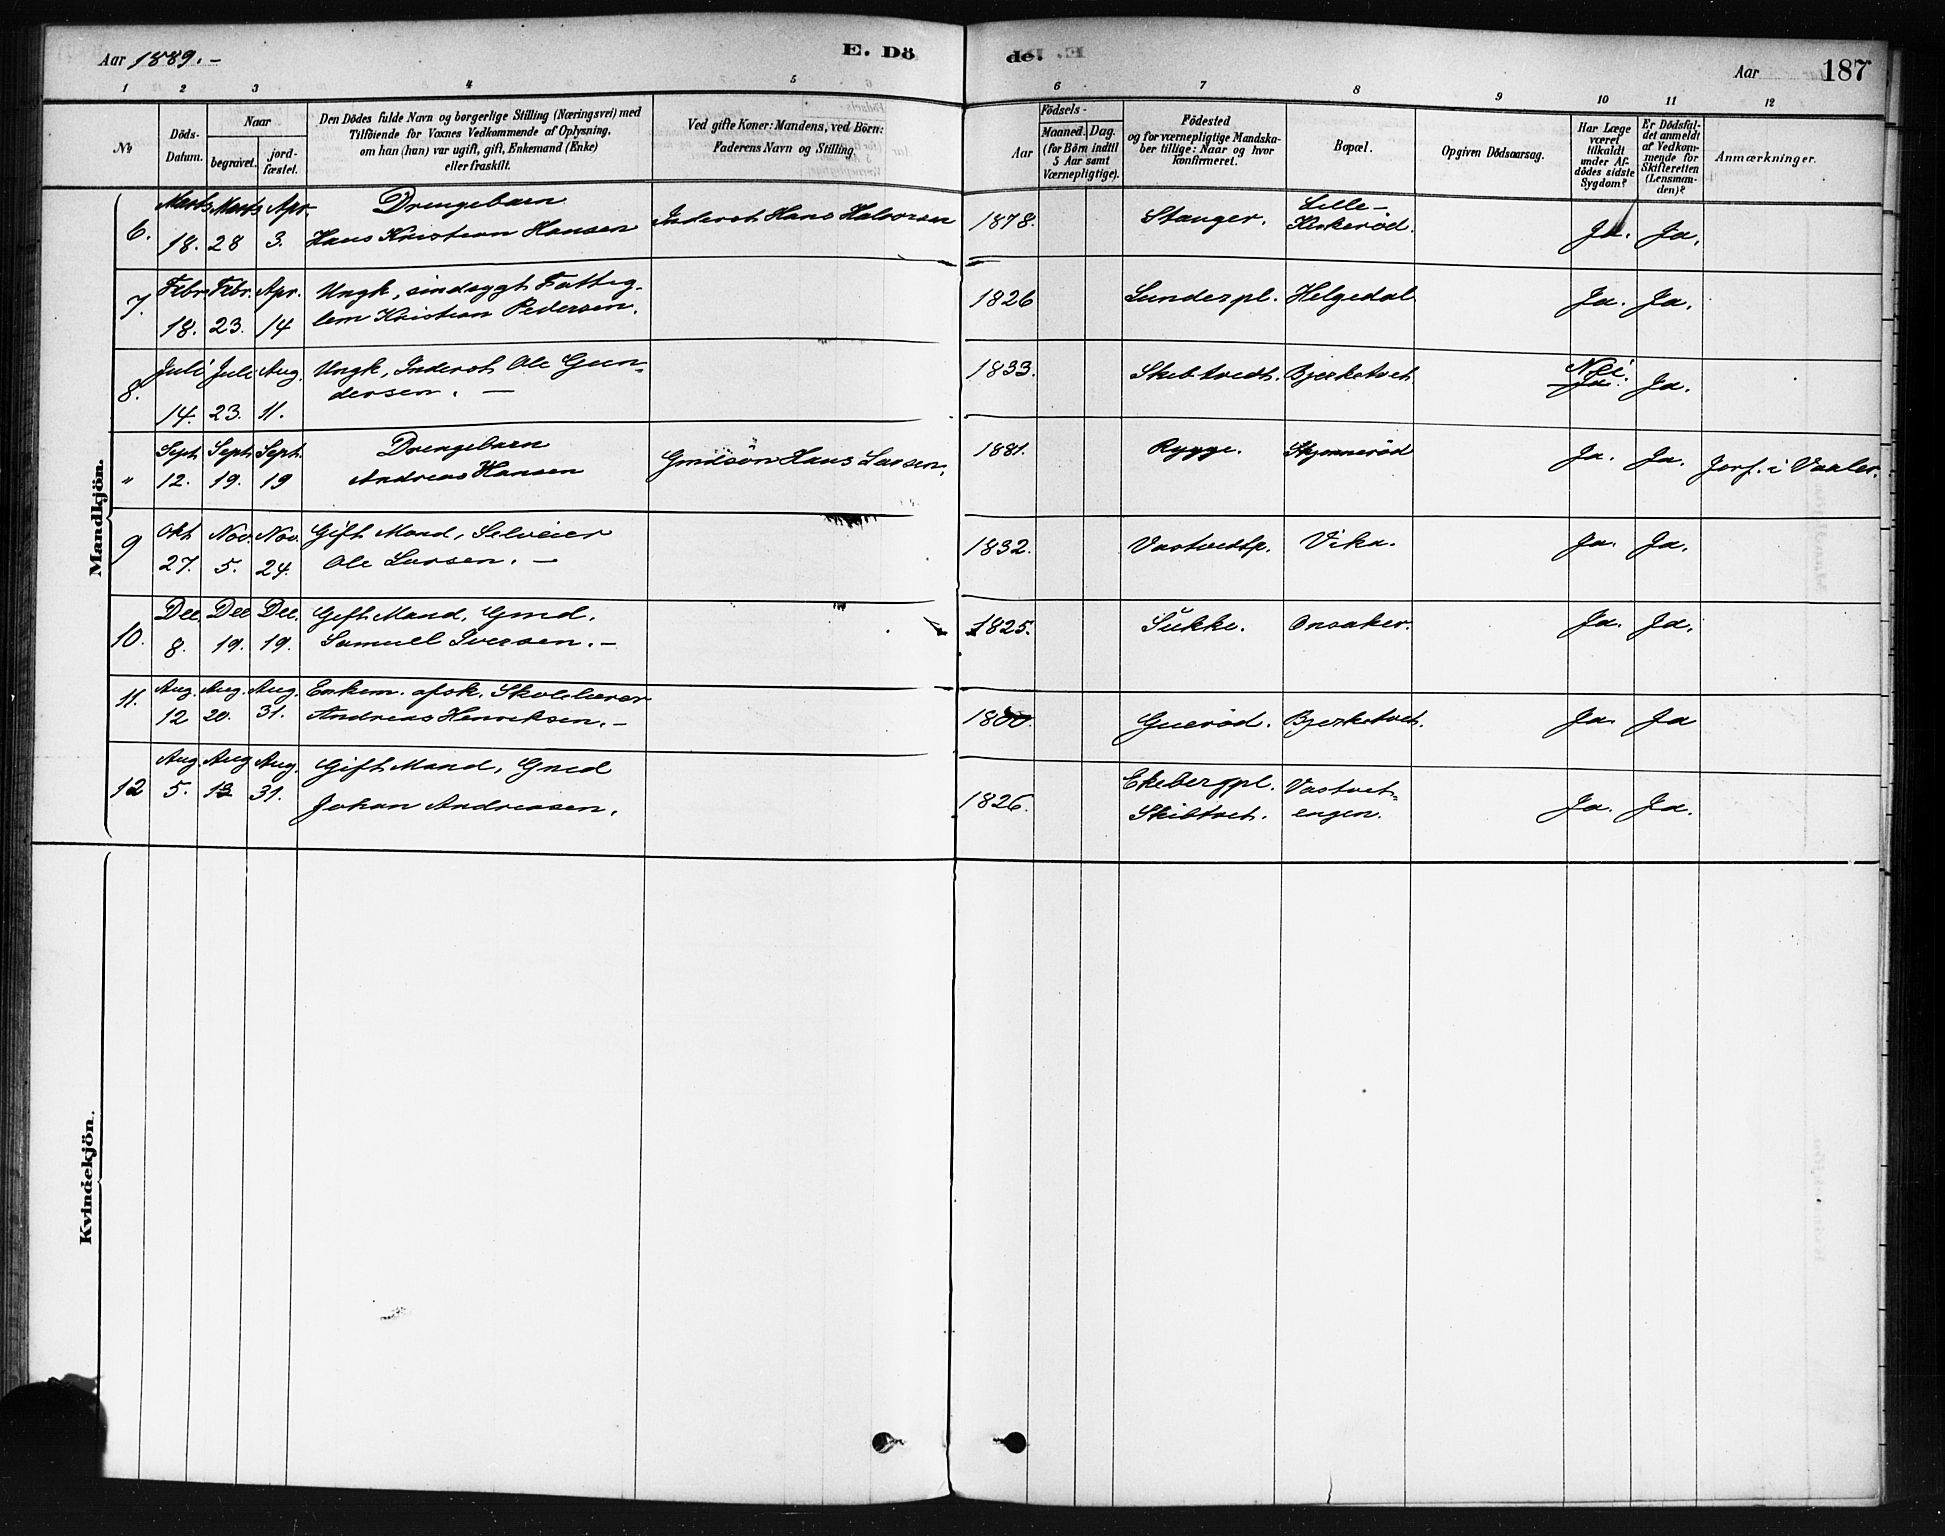 Aar 1889. -
E. Dö
de.
Aar
187
1 2 3 4 5
6 7 8 9 10 11 12
No
Döds-
Datum.
Naar
begravet.
jord-
fæstet.
Den Dödes fulde Navn og borgerlige Stilling (Næringsvei) med
Tilföiende for Voxnes Vedkommende af Oplysning,
om han (hun) var ugift, gift, Enkemand (Enke)
eller fraskilt.
Ved gifte Koner: Mandens, ved Börn:
Faderens Navn og Stilling.
Födsels-
Aar
Maaned. Dag.
(for Börn indtil
5 Aar samt
Værnepligtige).
Födested
og for værnepligtige Mandska-
ber tillige: Naar og hvor
konfirmeret.
Bopæl.
Opgiven Dödsaarsag.
Har Læge
været
tilkaldt
under Af-
dödes sidste
Sygdom?
Er Dödsfal-
det anmeldt
af Vedkom-
mende for
Skifteretten
(Lensman-
den)?
Anmærkninger.
Mandkjön.
6. Marts 18. Marts 28 Apr. 3. Drengebarn
Hans Kristian Hansen
Inderst Hans Halvorsen
1878. Stanger. Lille-
Kirkerød. Ja. Ja.
7. Febr. 18. Febr. 23. Apr. 14 Ungk, sindssygt Fattig-
lem Kristian Pedersen.
1826 Sunderpl. Helgedal Ja. Ja.
8. Juli 14. Juli 23. Aug. 11. Ungk, Inderst Ole Gun-
dersen. -
1833. Skibtvedt. Bjerketvet Nei. Ja. Ja.
" Sept. 12. Sept. 19. Sept. 19 Drengebarn
Andreas Hansen
Gmdsön Hans Larsen.
1881. Rygge. Ja. Ja. Jorf. i Vaaler.
9 Okt 27. Nov. 5. Nov. 24. Gift Mand, Selveier
Ole Larsen. -
1832. Vastvedtp. Vika. Ja. Ja.
10. Dec. 8. Dec 19. Dec. 19. Gift Mand, Gmd.
Samuel Iversen. -
1825. Sukke. Onsaker. Ja. Ja.
11. Aug. 12 Aug. 20. Aug. 31. Enkem. afsk. Skolelærer
Andreas Henriksen. -
1800. Guerød. Bjerketvet. Ja. Ja
12 Aug. 5. Aug 13 Aug. 31. Gift Mand, Gmd
Johan Andreasen.
1826. Ekebergpl.
Skibtvet. Vastvet-
engen. Ja. Ja.
Kvindekjön.